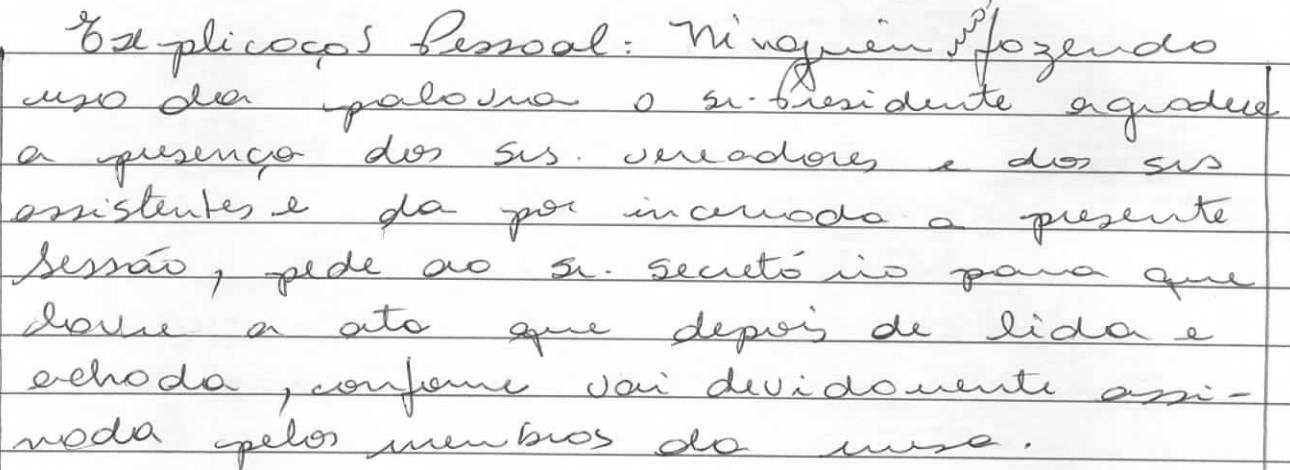 Explicaços Pessoal: Ninguén fazendo
uso da palavra o sr. Presidente agradece
a presença dos srs. vereadores e dos srs
assistentes e da por incerrada a presente
Sessão, pede ao sr. secretário para que
lavre a ata que depois de lida e
achada, conforme vai devidamente assi-
nada pelos membros da mesa.